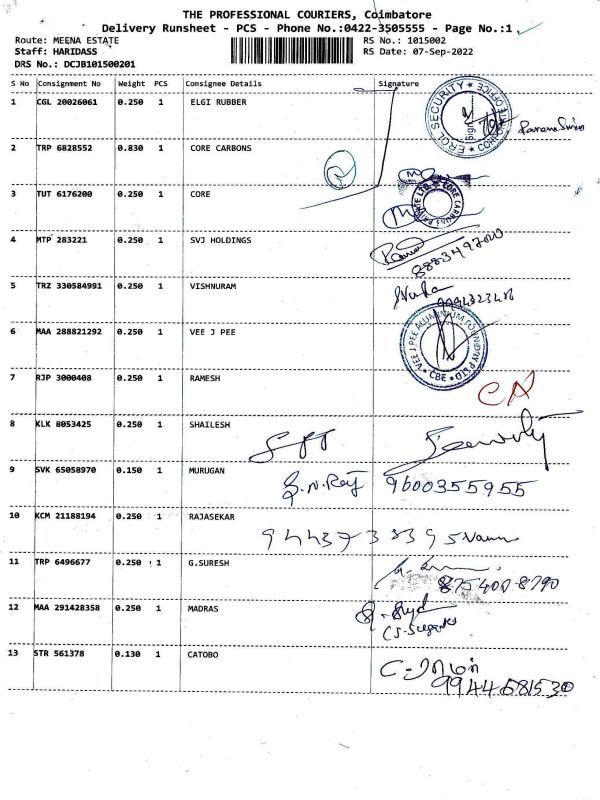 THE PROFESSIONAL COURIERS, Coimbatore
Delivery Runsheet - PCS - Phone No.:0422-3505555 - Page No.:1
Route: MEENA ESTATE
RS No.: 1015002
Staff: HARIDASS
RS Date: 07-Sep-2022
DRS No.: DCJB101500201
S No Consignment No Weight PCS Consignee Details Signature
1 CGL 20026061 0.250 1 ELGI RUBBER
2 TRP 6828552 0.830 1 CORE CARBONS
3 TUT 6176200 0.250 1 CORE
4 MTP 283221 0.250 1 SVJ HOLDINGS
5 TRZ 330584991 0.250 1 VISHNURAM
6 MAA 288821292 0.250 1 VEE J PEE
VEE J PEE ALUMINIUM FOUNDRY P LTD CBE
7 RJP 3000408 0.250 1 RAMESH
CA
8 KLK 8053425 0.250 1 SHAILESH
9 SVK 65058970 0.150 1 MURUGAN
9600355955
10 KCM 21188194 0.250 1 RAJASEKAR
11 TRP 6496677 0.250 1 G.SURESH
12 MAA 291428358 0.250 1 MADRAS
13 STR 561378 0.130 1 CATOBO